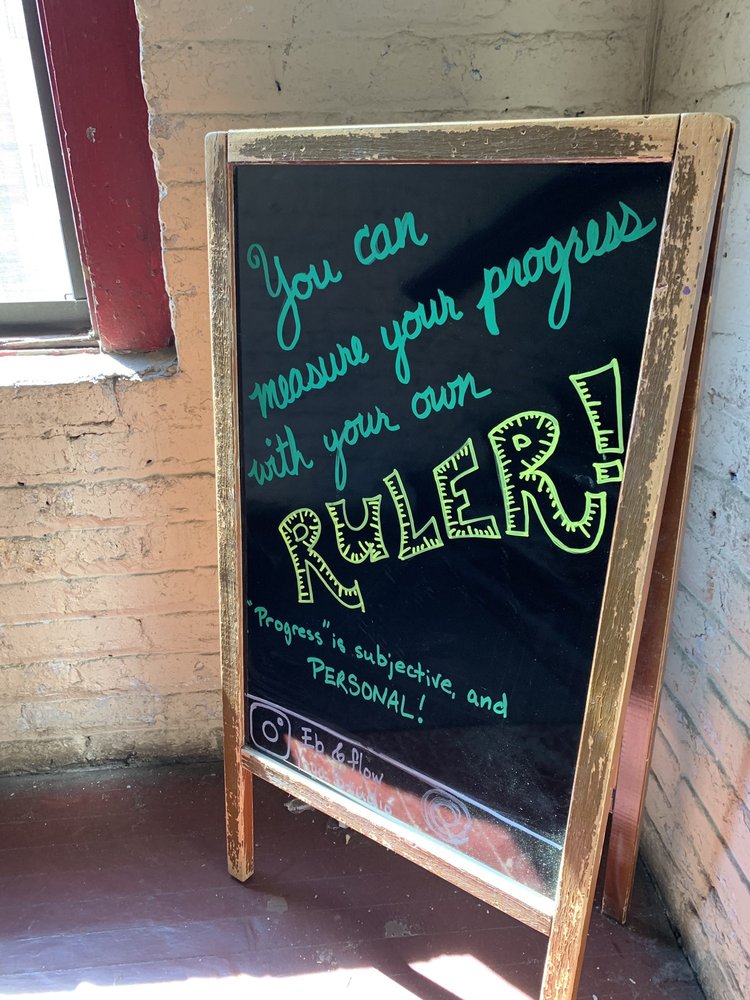 You can
measure your progress
with your own
RULER!
"Progress" is subjective, and
PERSONAL!
Eb & flow